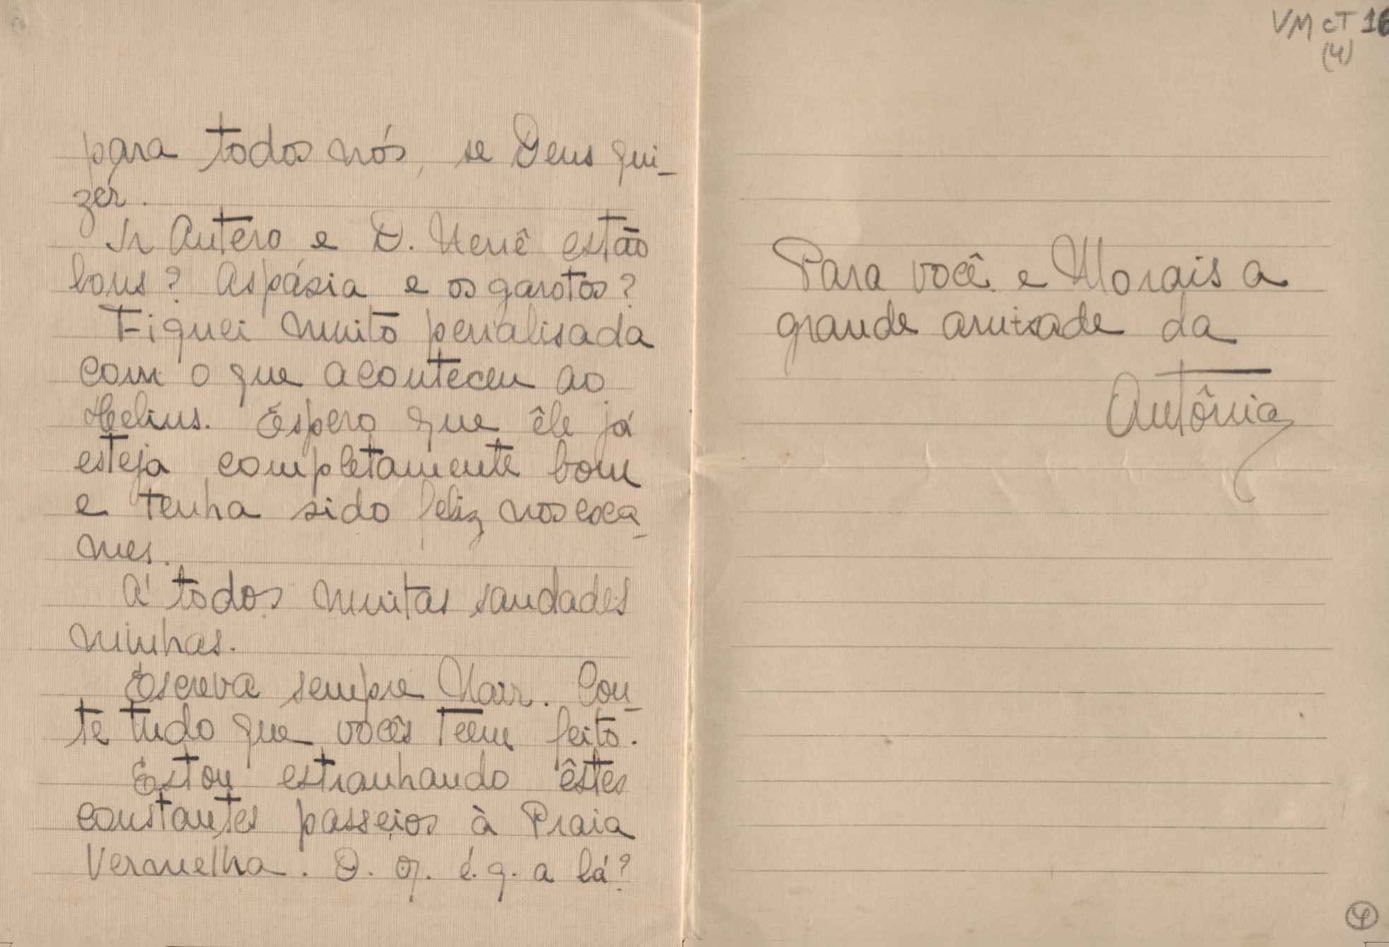 para todos nós, se Deus qui_
zer.
Sr Antero e D. Nenê estão
bons? Aspásia e os garotos?
Fiquei muito penalisada
com o que aconteceu ao
Helius. Espero que êle já
esteja completamente bom
e tenha sido feliz nos exa_
mes.
A' todos muitas saudades
minhas.
Escreva sempre Nair. Con_
te tudo que vocês teem feito.
Estou estranhando êstes
constantes passeios à Praia
Vermelha. O. q. é. q. a lá?
VM cT 16
(4)
Para você e Morais a
grande amizade da
Antônia
4